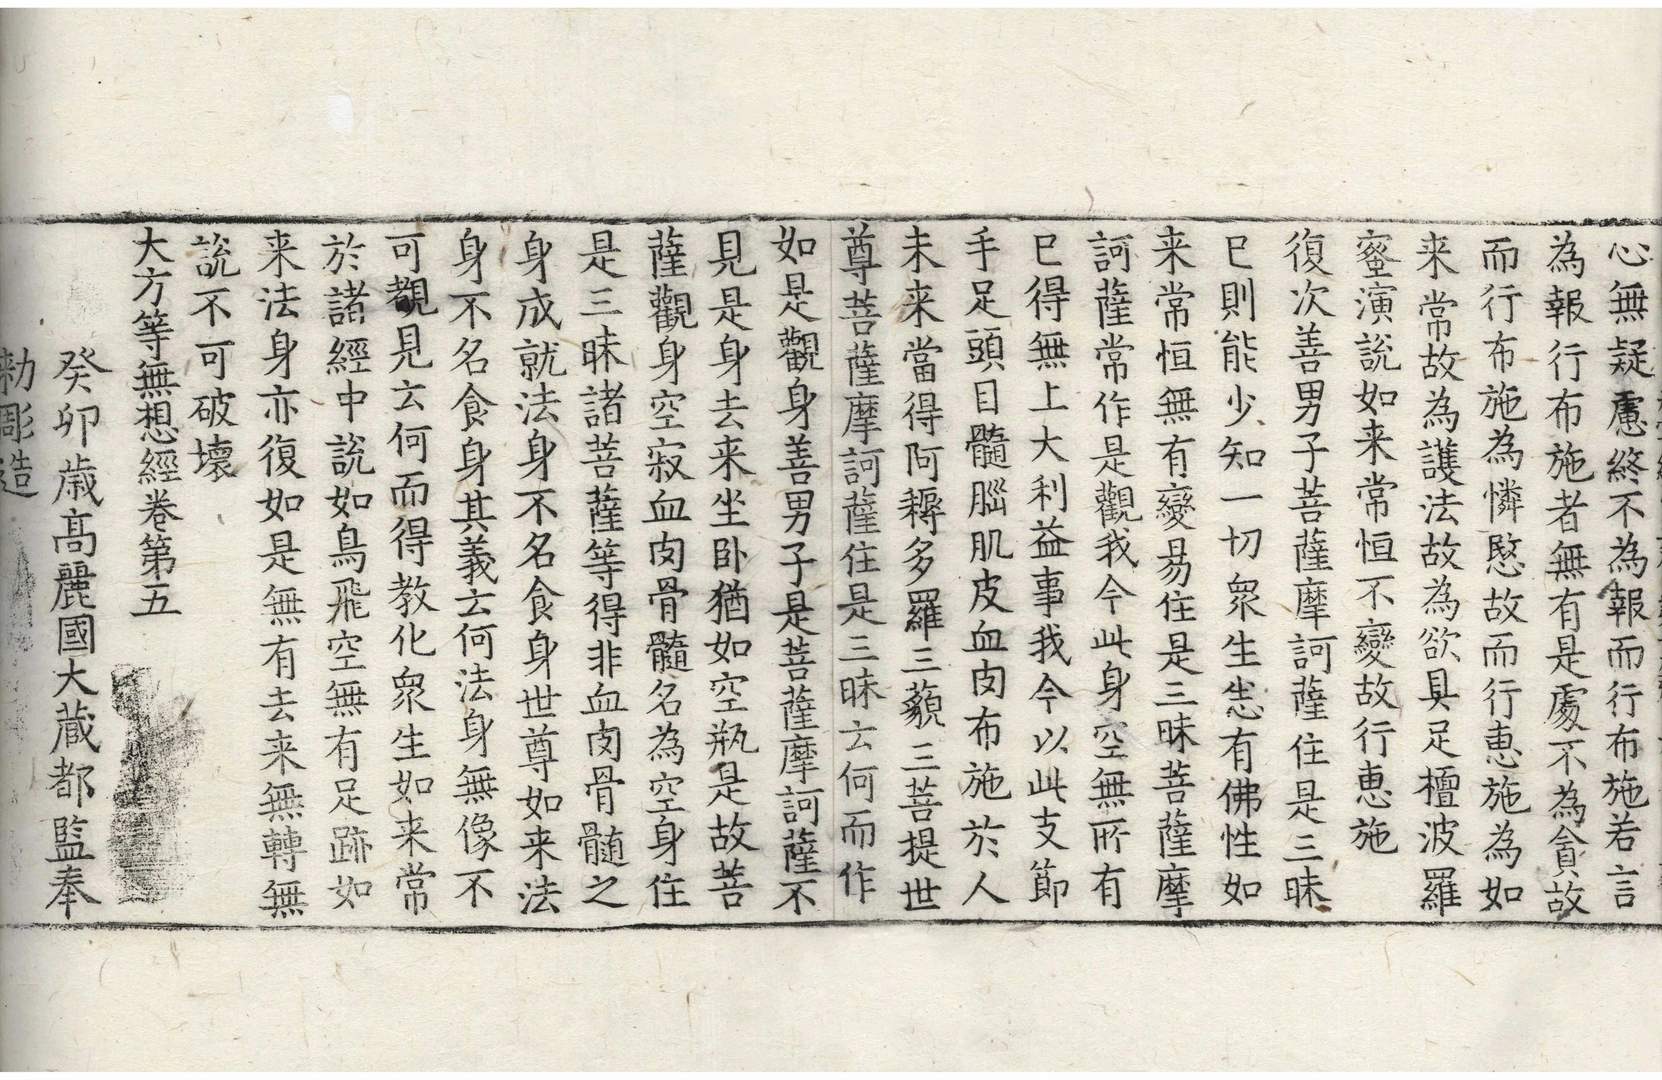 心無疑慮終不為報而行布施若言
為報行布施者無有是處不為貪故
而行布施為憐愍故而行恵施為如
来常故為護法故為欲具足檀波羅
蜜演說如来常恒不變故行恵施
復次善男子菩薩摩訶薩住是三昧
已則能少知一切衆生悉有佛性如
来常恒無有變易住是三昧菩薩摩
訶薩常作是觀我今此身空無所有
已得無上大利益事我今以此支節
手足頭目髓腦肌皮血肉布施於人
未来當得阿耨多羅三藐三菩提世
尊菩薩摩訶薩住是三昧云何而作
如是觀身善男子是菩薩摩訶薩不
見是身去来坐卧猶如空瓶是故菩
薩觀身空寂血肉骨髓名為空身住
是三昧諸菩薩等得非血肉骨髓之
身成就法身不名食身世尊如来法
身不名食身其義云何法身無像不
可覩見云何而得教化衆生如来常
於諸經中說如鳥飛空無有足跡如
来法身亦復如是無有去来無轉無
說不可破壞
大方等無想經卷第五
癸卯歳高麗國大藏都監奉
勑彫造